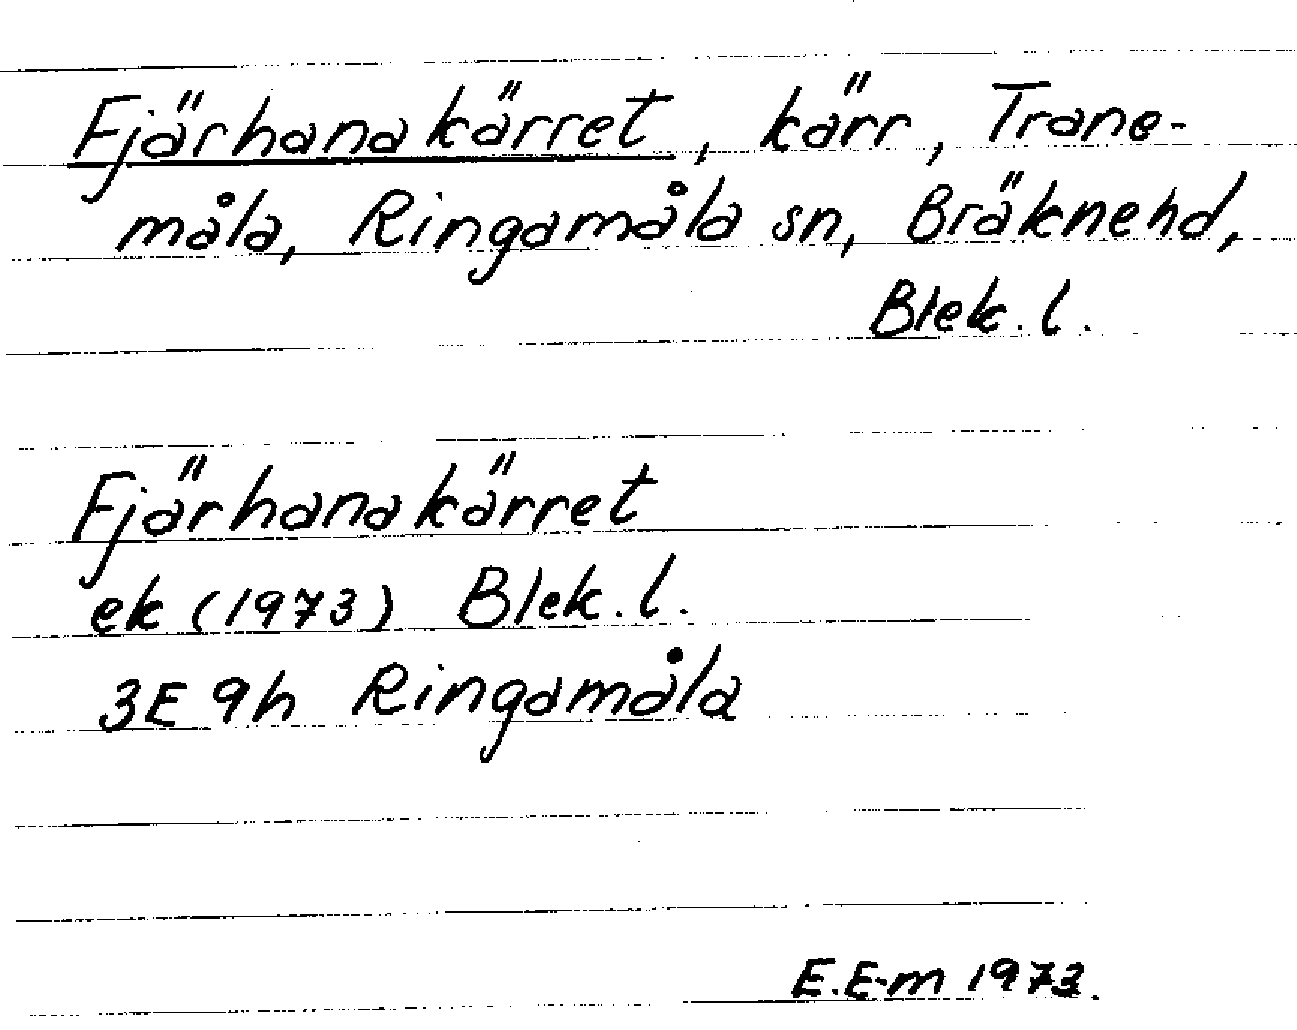 Fjärhanakärret, kärr, Trane-
måla, Ringamåla sn, Bräknehd,
Blek. l.
Fjärhanakärret
ek (1973) Blek. l.
3E 9h Ringamåla
E.E-m 1973.